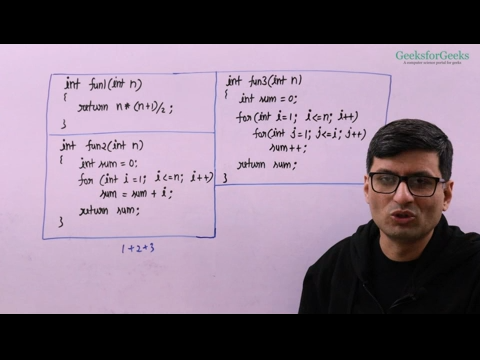 GeeksforGeeks
A computer science portal for geeks
int fun1(int n)
{
return n*(n+1)/2;
}
int fun2(int n)
{
int sum=0;
for (int i=1; i<=n; i++)
sum = sum + i;
return sum;
}
int fun3(int n)
{
int sum=0;
for(int i=1; i<=n; i++)
for(int j=1; j<=i; j++)
sum++;
return sum;
}
1+2+3